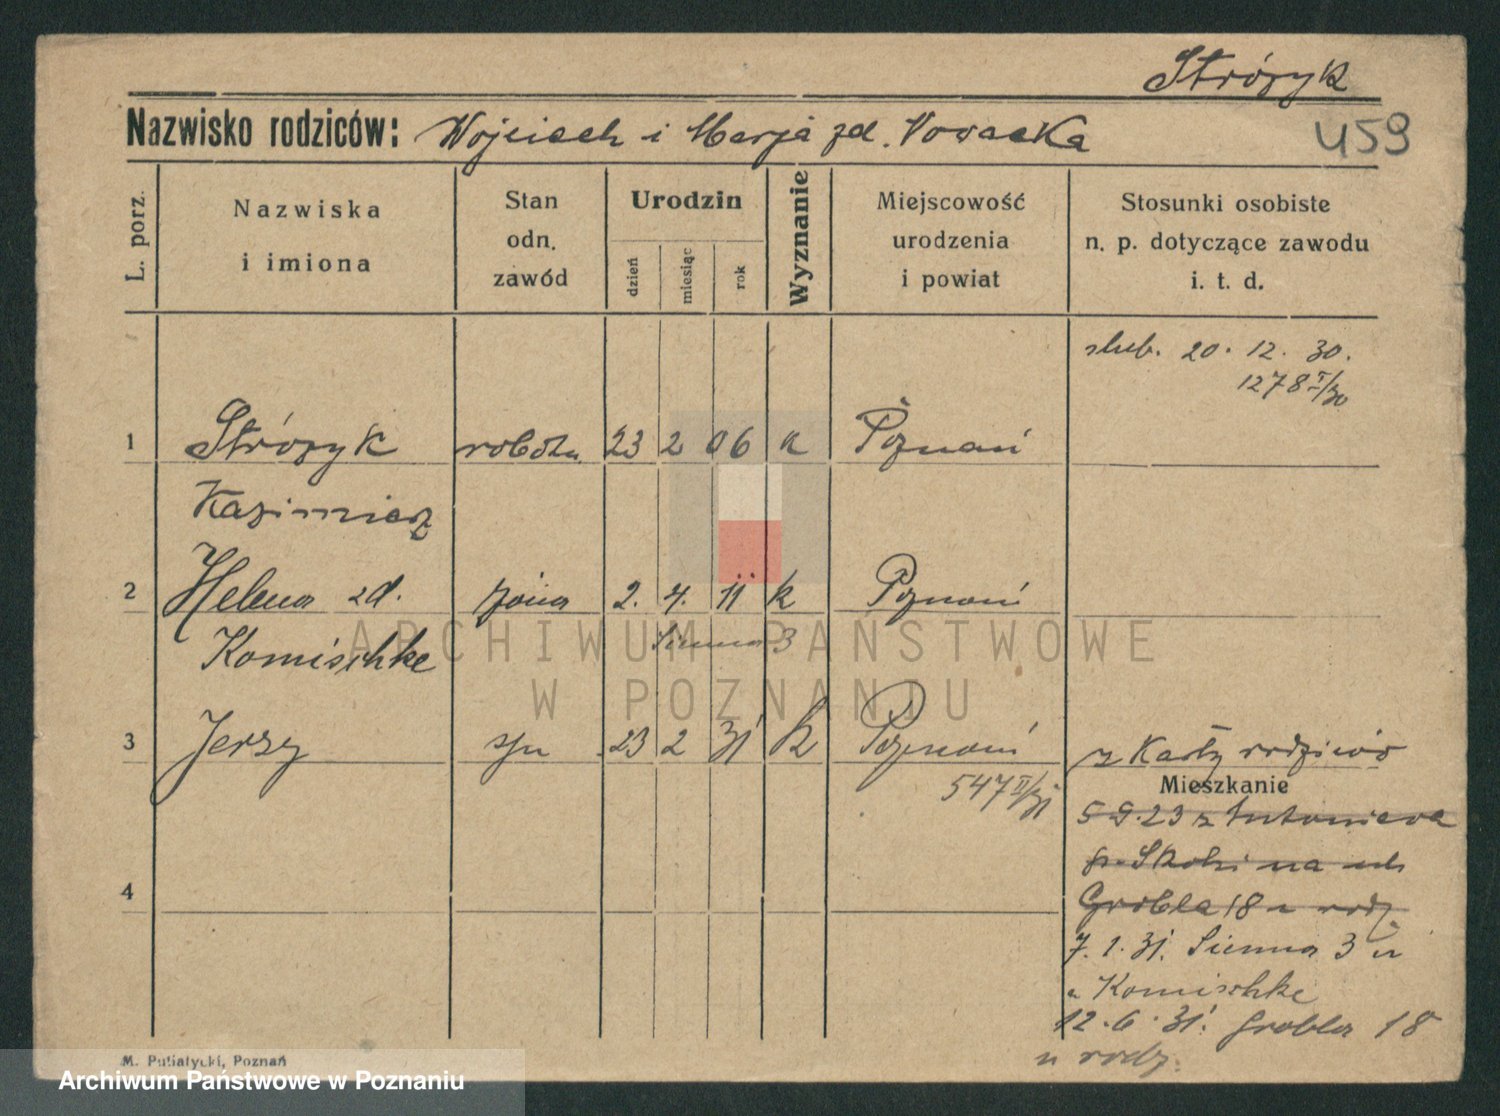 Stróżyk
Nazwisko rodziców: Wojciech i Marja zd. Nowacka
459
L. porz.
Nazwiska
i imiona
Stan
odn.
zawód
Urodzin
dzień
miesiąc
rok
Wyznanie
Miejscowość
urodzenia
i powiat
Stosunki osobiste
n. p. dotyczące zawodu
i. t. d.
ślub. 20. 12. 30.
1278 I/30
1 Stróżyk robotn. 23 2 06 k Poznań
Kazimierz
2 Helena zd. żona 2. 4. 11 k Poznań
Komischke Sienna 3
3 Jerzy syn 23 2 31 k Poznań
547 II/31
z Karty rodziców
Mieszkanie
5.9.23 z Antoniewa
p. Skoki na ul.
Grobla 18 u rodz.
7. 1. 31. Sienna 3 u
Komischke
12. 6. 31. Grobla 18
u rodz.
4
M. Putiatycki, Poznań
ARCHIWUM PAŃSTWOWE
W POZNANIU
Archiwum Państwowe w Poznaniu